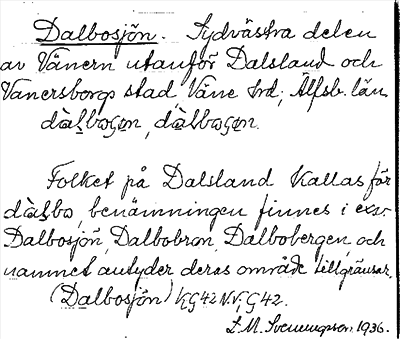 Dalbosjön. Sydvästra delen
av Vänern utanför Dalsland och
Vanersborgs stad, Väne hd; Älfsb. län

Folket på Dalsland kallas för
dalbo, benämningen finnes i ex.
Dalbosjön, Dalbobron, Dalbobergen, och
namnet antyder deras område tillgränsar.
(Dalbosjön)
L.M. Svenungsson 1936.